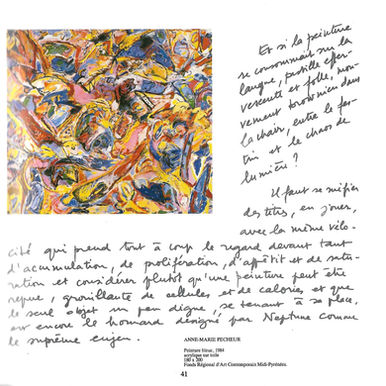 Et si la peinture
se consommait sur la
langue, pastille effer-
vescente et folle, mou-
vement dans
la chair, entre le fes-
tin et le chaos de
lumière ?
Il faut se méfier
des titres, en jouer,
avec la même vélo-
cité qui prend tout à coup le regard devant tant
d'accumulation, de prolifération, d'appétit et de satu-
ration et considérer plutôt qu'une peinture peut être
repue, grouillante de cellules et de calories et que
le seul objet un peu digne, se tenant à sa place,
est encore le homard désigné par Neptune comme
le suprême enjeu.
ANNE-MARIE PECHEUR
Peinture bleue, 1984
acrylique sur toile
180 x 200
Fonds Régional d'Art Contemporain Midi-Pyrénées.
41